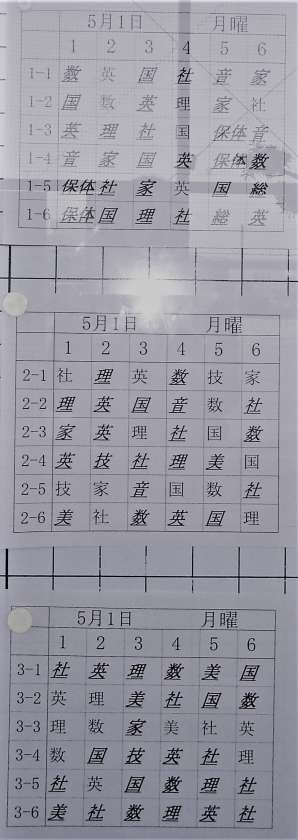 5月1日 月曜
1 2 3 4 5 6
1-1 数 英 国 社 音 家
1-2 国 数 英 理 家 社
1-3 英 理 社 国 保体 音
1-4 音 家 国 英 保体 数
1-5 保体 社 家 英 国 総
1-6 保体 国 理 社 総 英
5月1日 月曜
1 2 3 4 5 6
2-1 社 理 英 数 技 家
2-2 理 英 国 音 数 社
2-3 家 英 理 社 国 数
2-4 英 技 社 理 美 国
2-5 技 家 音 国 数 社
2-6 美 社 数 英 国 理
5月1日 月曜
1 2 3 4 5 6
3-1 社 英 理 数 美 国
3-2 英 理 美 社 国 数
3-3 理 数 家 美 社 英
3-4 数 国 技 英 社 理
3-5 社 英 国 数 理 社
3-6 美 社 数 理 英 社